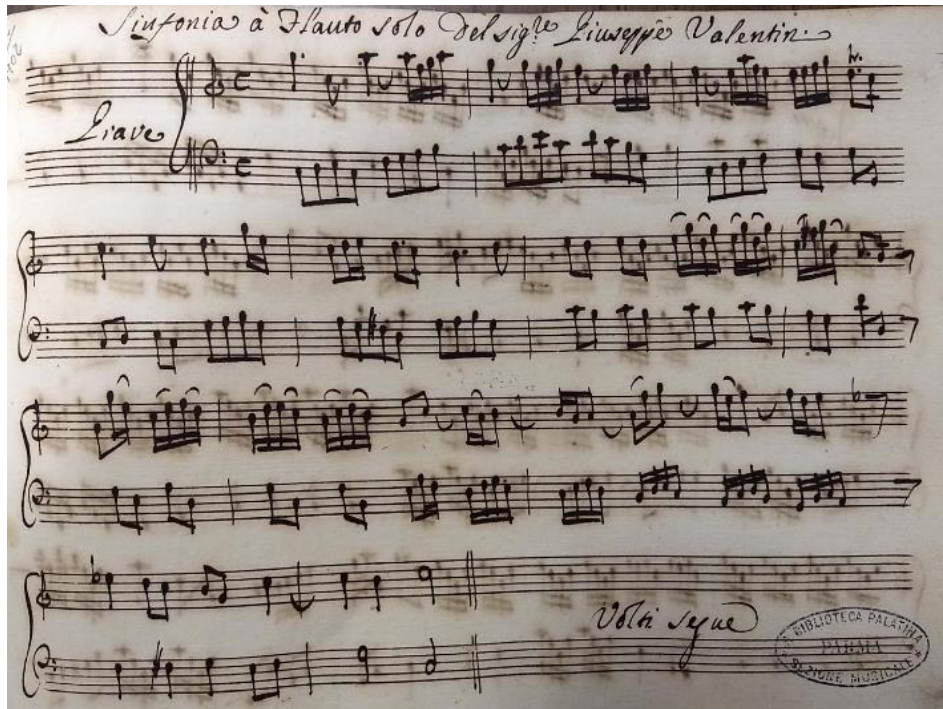 Sinfonia à Flauto solo Del sig.re Giuseppe Valentin:
Grave
Volti segue
BIBLIOTECA PALATINA
PARMA
SEZIONE MUSICALE